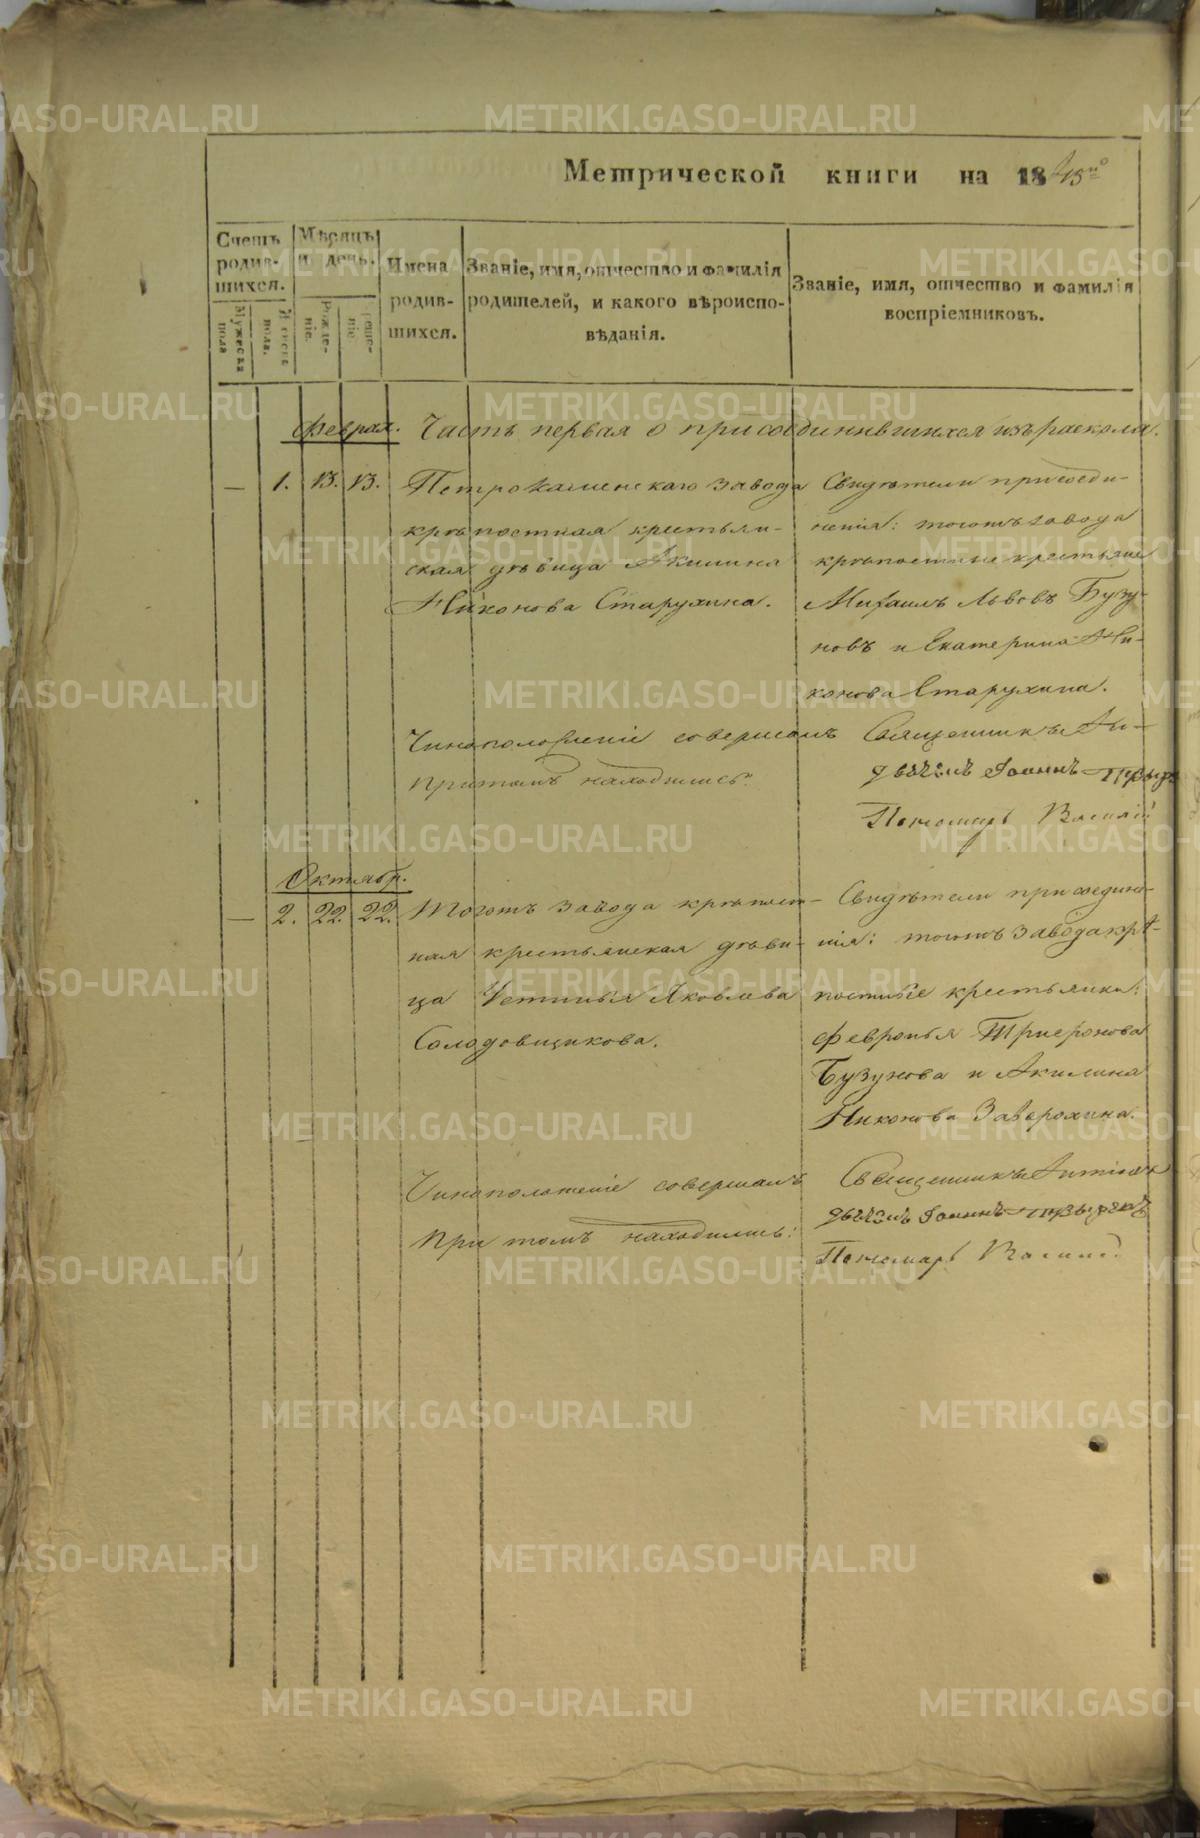 Метрической книги на 1845й
Счетъ родив-шихся.
Мѣсяцъ и день.
Имена родив-шихся.
Званіе, имя, отчество и фамилія родителей, и какого вѣроиспо-вѣданія.
Званіе, имя, отчество и фамилія воспріемниковъ.
Мужеска пола
Женска пола.
Рожде-ніе.
Креще-ніе.
Феврал. Часть первая о присоединившихся изъ раскола.
— 1. 13. 13. Петрокаменскаго завода
крѣпостная крестьян-
ская дѣвица Акилина
Никонова Старухина.
Свидѣтели присоеди-
ненія: тогожъ завода
крѣпостные крестьяне
Михаилъ Львовъ Бузу-
новъ и Екатерина Ни-
конова Старухина.
Чиноположеніе совершалъ Священникъ
При томъ находились: Дьячекъ Іоаннъ
Пономарь Василій
Октябр.
— 2. 22. 22. Тогожъ завода крѣпост-
ная крестьянская дѣви-
ца Устинья Яковлева
Солодовщикова.
Свидѣтели присоедине-
нія: тогожъ завода крѣ-
постные крестьянки:
Февронья Триѳонова
Бузунова и Акилина
Никонова Заверохина.
Чиноположеніе совершалъ Священникъ
При томъ находились: Дьячекъ Іоаннъ
Пономарь Василій
METRIKI.GASO-URAL.RU